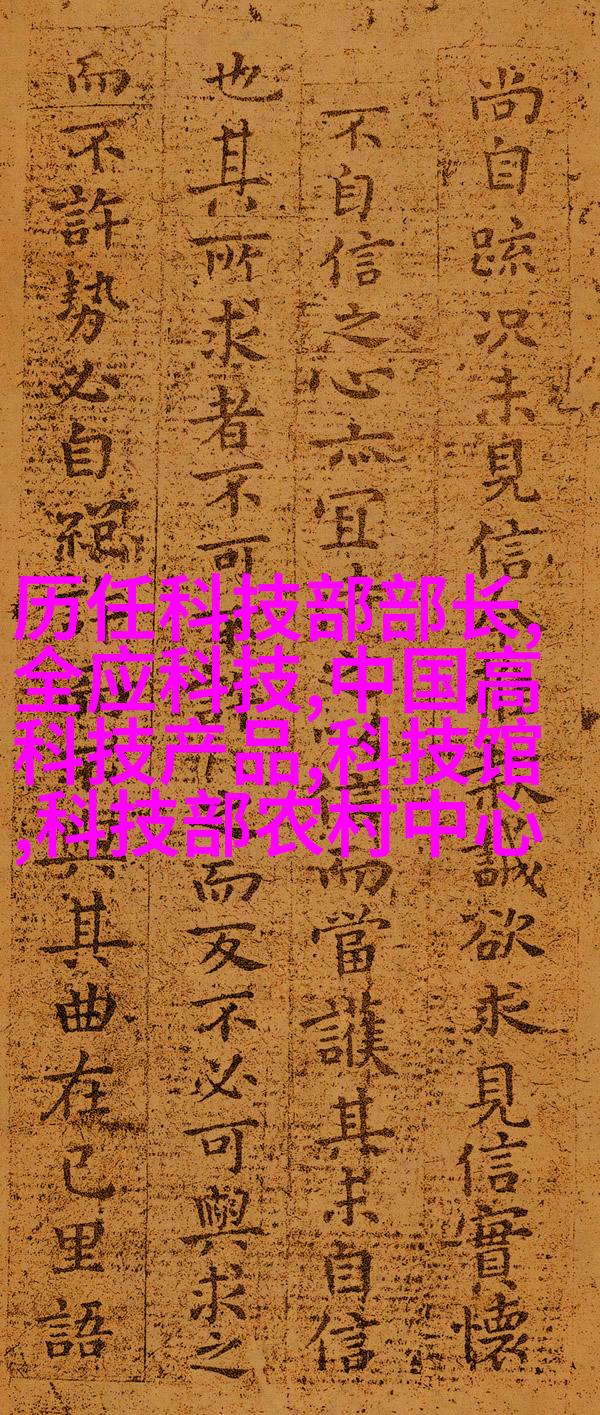 尚自踈况未見信誠欲求見信實懷
不自信之心亦宜而當護其未自信
也其所求者不可而反不必可與求之
而不許勢必自絕其曲在己里語
历任科技部部长,
全应科技,中国高
科技产品,科技馆
,科技部农村中心